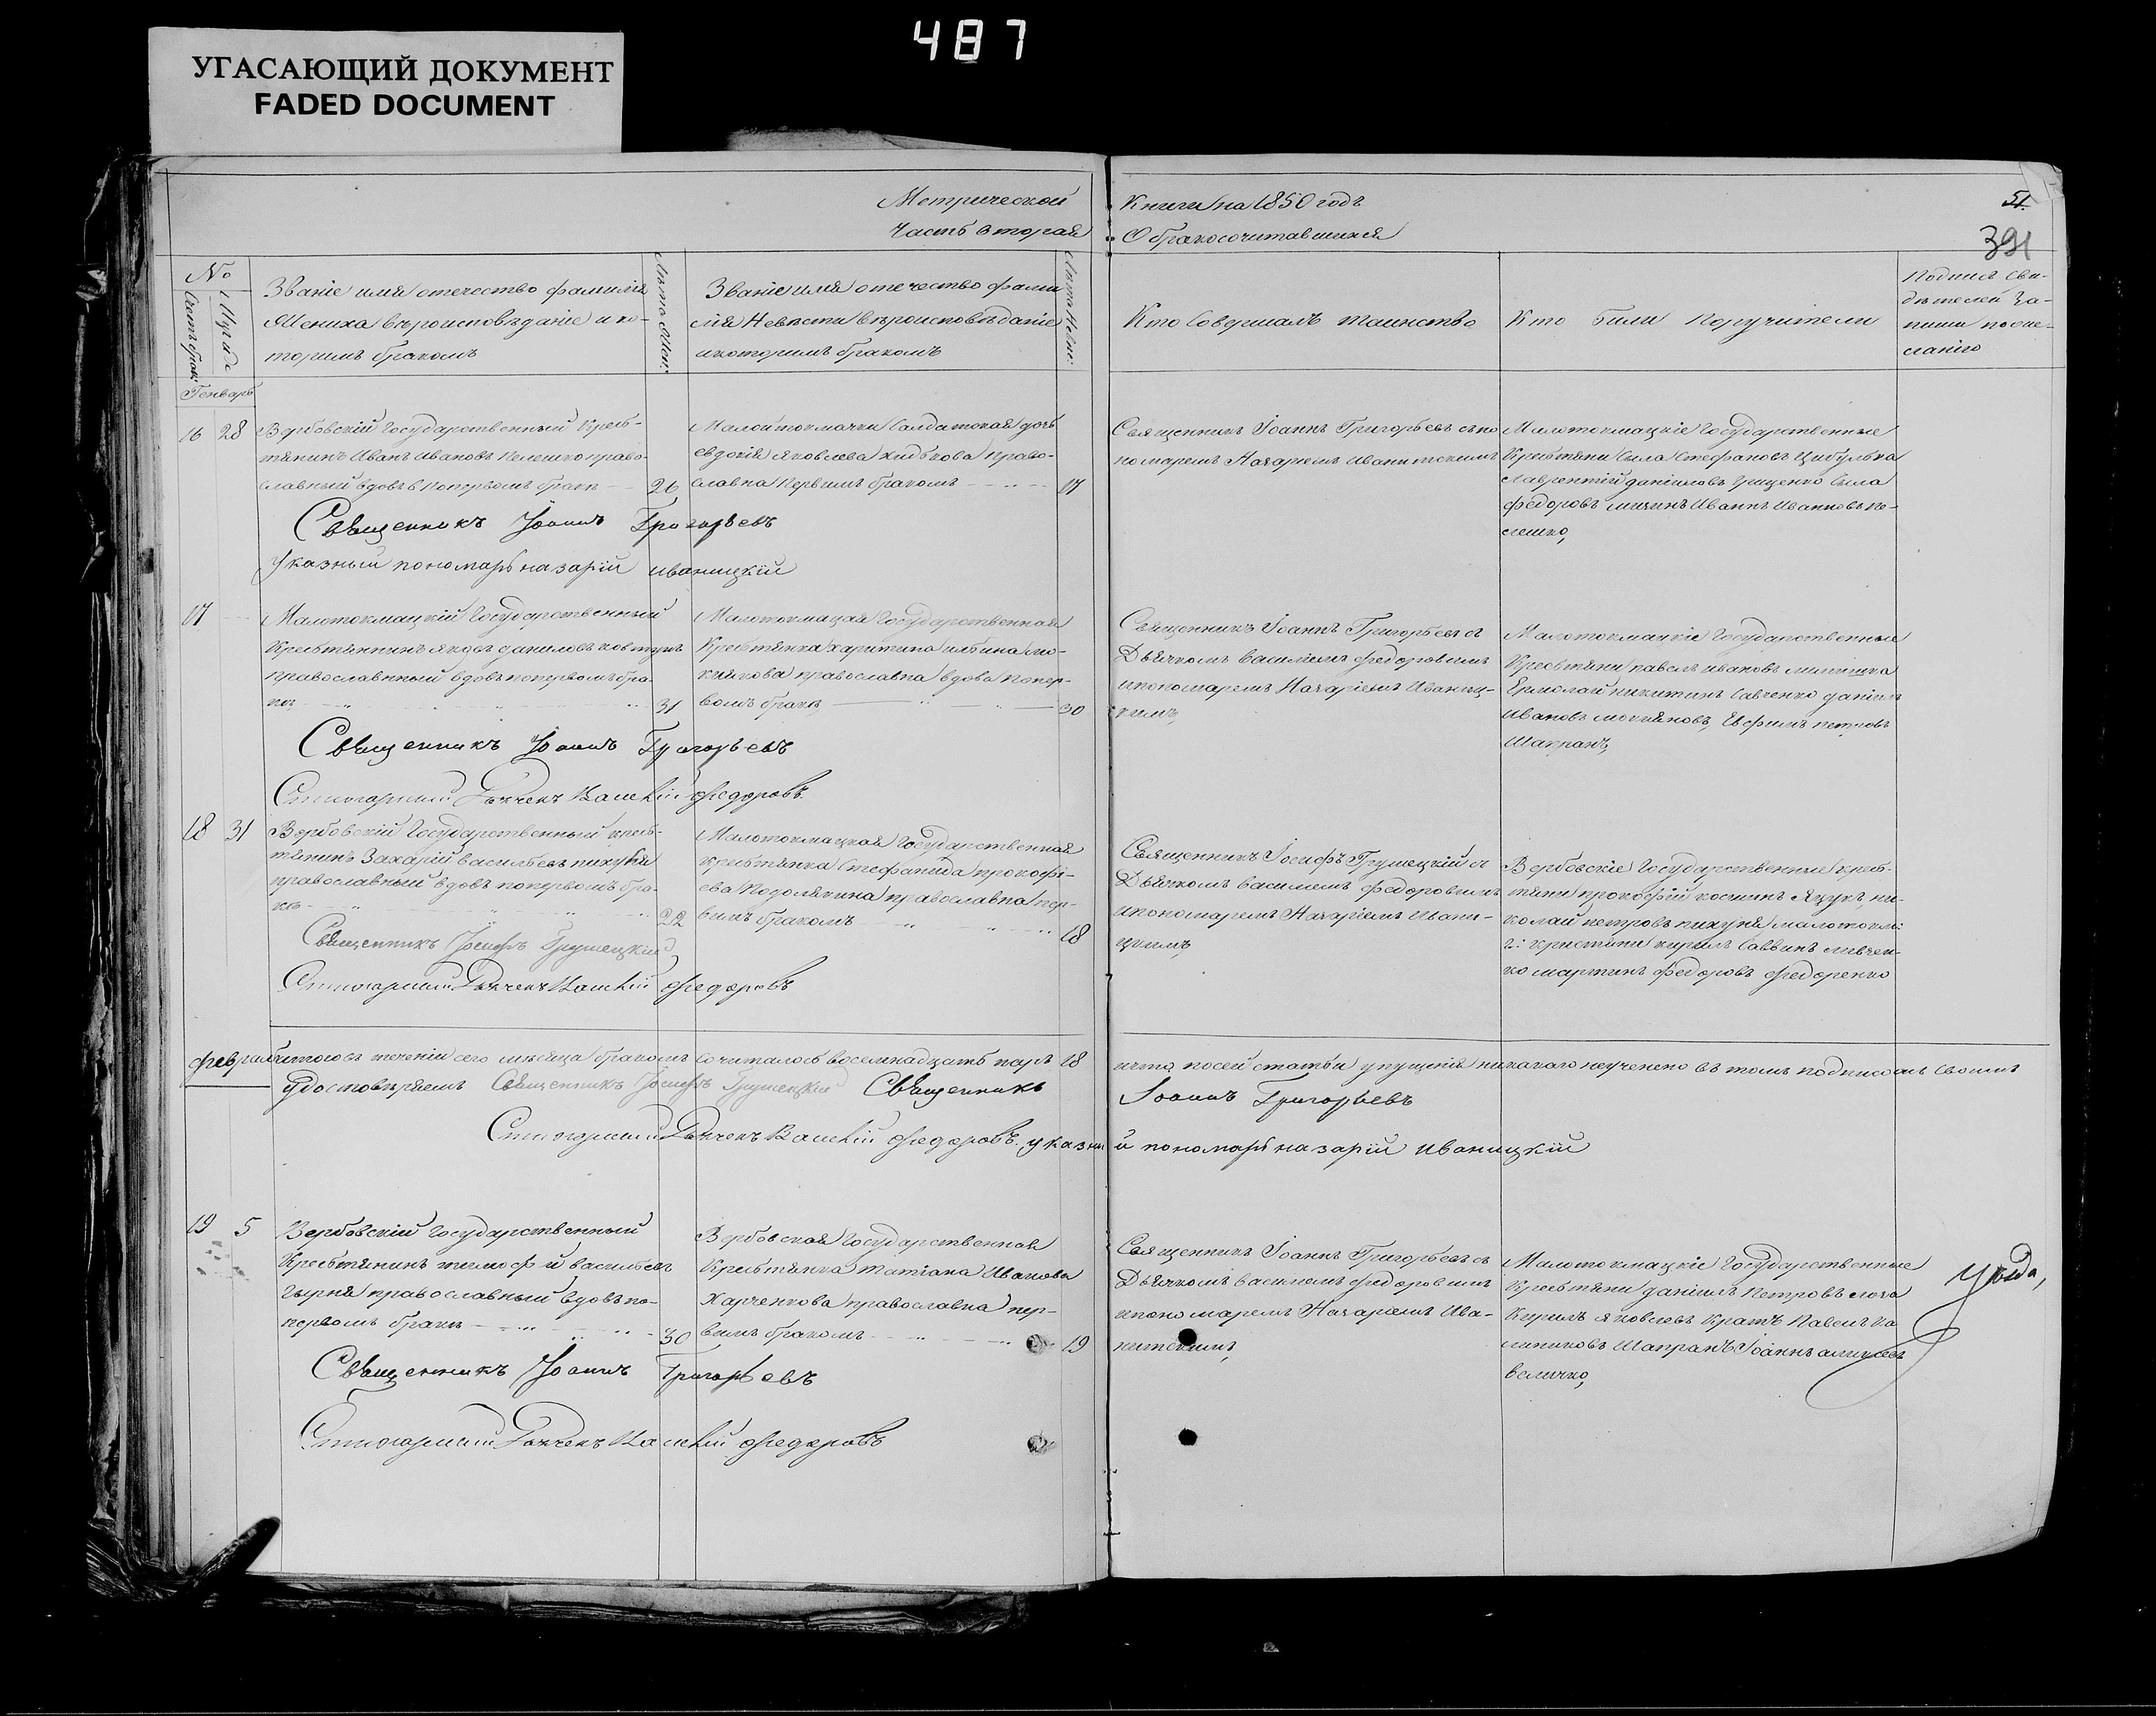 487
УГАСАЮЩИЙ ДОКУМЕНТ
FADED DOCUMENT
Метрической
Часть вторая
Книги на 1850 годъ
О бракосочитавшихся
51.
391
№
Счетъ брак:
Муж:
Званіе имя отечество фамилія
Жениха вѣроисповѣданіе и ко-
торимъ бракомъ
Лѣта Жен:
Званіе имя отечество фами
лія Невѣсти вѣроисповѣданіе
икоторимъ бракомъ
Лѣта Невѣс:
Кто Совершалъ таинство
Кто били Поручители
Подпись сви-
дѣтелей за-
писи по же-
ланію
Генварь
16 28 Вербовскій Государственный Крес-
тянинъ Иванъ Ивановъ Пелешко право-
славный вдовъ Поперьвомъ бракѣ 26
Малойтокмачки Салдатская дочь
евдокія Яковлева Хидькова право-
славна Первимъ бракомъ 17
Священникъ Іоаннъ Григорьевъ съпо
номаремъ Назаріемъ Иваницкимъ
Малотокмацкіе Государственные
Крестяни Сила Стефановъ Цибулька
Лаврентій даніиловъ Грищенко Сила
федоровъ Иваннъ Иванновъ Пе-
лешко,
Священникъ Іоаннъ Григорьевъ
Указный пономарь назарій иваницкій
17 Малотокмацкій Государственный
Крестянинъ Яковъ даниловъ ковтунъ
православный вдовъ поперьвомъ бра-
кѣ 31
Малотокмацая Государственная
Крестянка харитина ильина Мо-
кіякова православна вдова попер-
вомъ бракѣ 30
Священникъ Іоаннъ Григорьевъ съ
Дьячкомъ василіемъ федоровимъ
ипономаремъ Назаріемъ Иваниц-
кимъ,
Малотокмацкіе Государственные
Крестяни павелъ ивановъ
Ермолай никитинъ Савченко даніилъ
Ивановъ мокіяновъ, Евфимъ петровъ
Шапранъ,
Священникъ Іоаннъ Григорьевъ
Стихарний Дьячекъ Василій Федоровъ
18 31 Вербовскій Государственный крес-
тянинъ Захарій васильевъ пихуня
православный вдовъ поперьвомъ бра-
кѣ 22
Малотокмацкая Государственная
крестянка Стефанида прокофі-
ева Подолякина православна пер-
вимъ бракомъ 18
Священникъ Іосифъ Грушецкій съ
Дьячкомъ василіемъ федоровимъ
ипономаремъ Назаріемъ Ивани-
цкимъ,
Вербовскіе Государственние крес-
тяни прокофій косминъ Яцукъ, ни-
колай петровъ пихуня малотокм:
г: кристяни кирилъ Саввинъ ливчен-
ко мартинъ федоровъ федоренко
Священникъ Іосифъ Грушецкій
Стихарний Дьячекъ Василій Федоровъ
февраль итого въ теченіи сего мѣсяца бракомъ Сочиталось восемнадцать паръ 18
ичто посей статьи упущенія никакого неучинено въ томъ подписомъ своимъ
удостовѣряемъ Священникъ Іосифъ Грушецкій Священникъ
Іоаннъ Григорьевъ
Стихарний Дьячекъ Василій Федоровъ. указны
й пономарь назарій иваницкій
19 5 Вербовскій Государственный
Крестянинъ тимофій васильевъ
Гирня православный вдовъ по-
первомъ бракѣ 30
Вербовская Государственная
Крестянка татіана Иванова
Харченкова православна пер-
вимъ бракомъ 19
Священникъ Іоаннъ Григорьевъ съ
Дьячкомъ василіемъ федоровимъ
ипономаремъ Назаріемъ Ива-
ницкимъ,
Малотокмацкіе Государственные
Крестяни даніилъ Петровъ
Кирилъ яковлевъ Кратъ Павелъ Ка
лениковъ Шапранъ Іоаннъ аликсеевъ
величко,
Священникъ Іоаннъ Григорьевъ
Стихарний Дьячекъ Василій Федоровъ